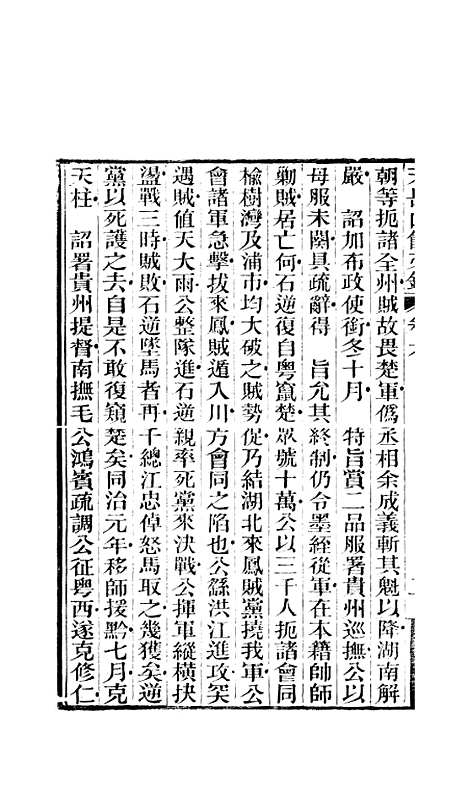 朝等扼諸全州賊故畏楚軍僞丞相余成義斬其魁以降湖南解
嚴　詔加布政使銜冬十月　特旨賞二品服署貴州巡撫公以
母服未闋具疏辭得　旨允其終制仍令墨絰從軍在本籍帥師
勦賊居亡何石逆復自粵竄楚眾號十萬公以三千人扼諸會同
楡樹灣及浦市均大破之賊勢促乃結湖北來鳳賊黨撓我軍公
會諸軍急擊拔來鳳賊遁入川方會同之陷也公繇洪江進攻笶
遇賊値天大雨公整隊進石逆親率死黨來決戰公揮軍縱橫抉
盪戰三時賊敗石逆墜馬者再千總江忠倬怒馬取之幾獲矣逆
黨以死護之去自是不敢復窺楚矣同治元年移師援黔七月克
天柱　詔署貴州提督南撫毛公鴻賓疏調公征粵西遂克修仁